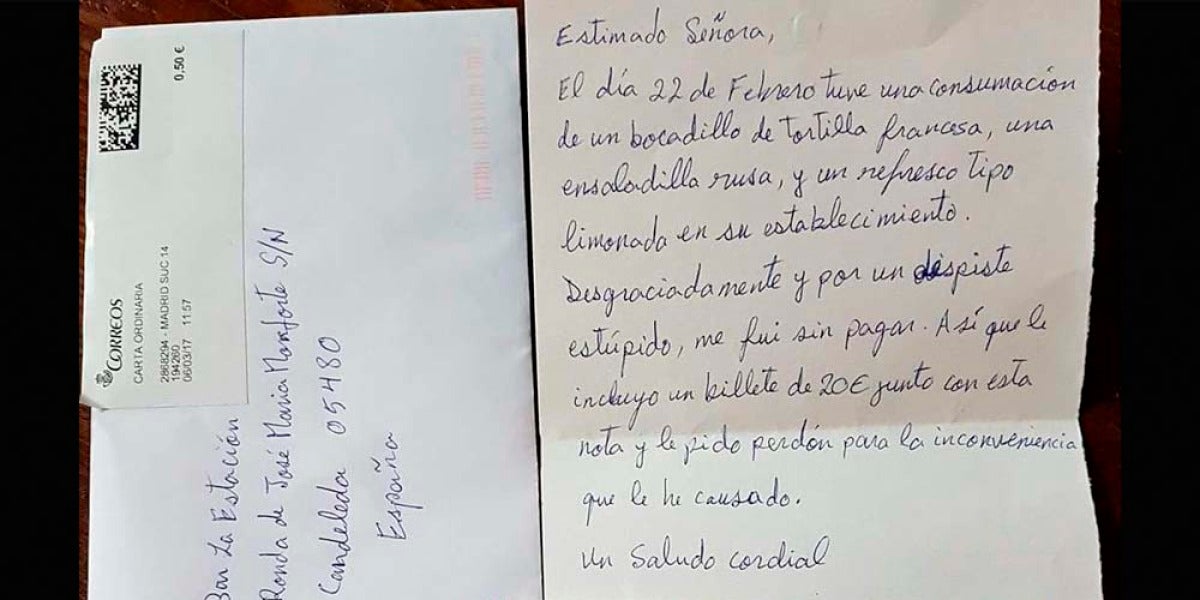 0,50 €
CORREOS
CARTA ORDINARIA
2868294 - MADRID SUC 14
194260
06/03/17 11:57
Bar La Estación
Ronda de José Maria Monforte S/N
Candeleda 05480
España
Estimado Señora,
El día 22 de Febrero tuve una consumación
de un bocadillo de tortilla francesa, una
ensaladilla rusa, y un refresco tipo
limonada en su establecimiento.
Desgraciadamente y por un despiste
estúpido, me fui sin pagar. Así que le
incluyo un billete de 20€ junto con esta
nota y le pido perdón para la inconveniencia
que le he causado.
Un Saludo cordial